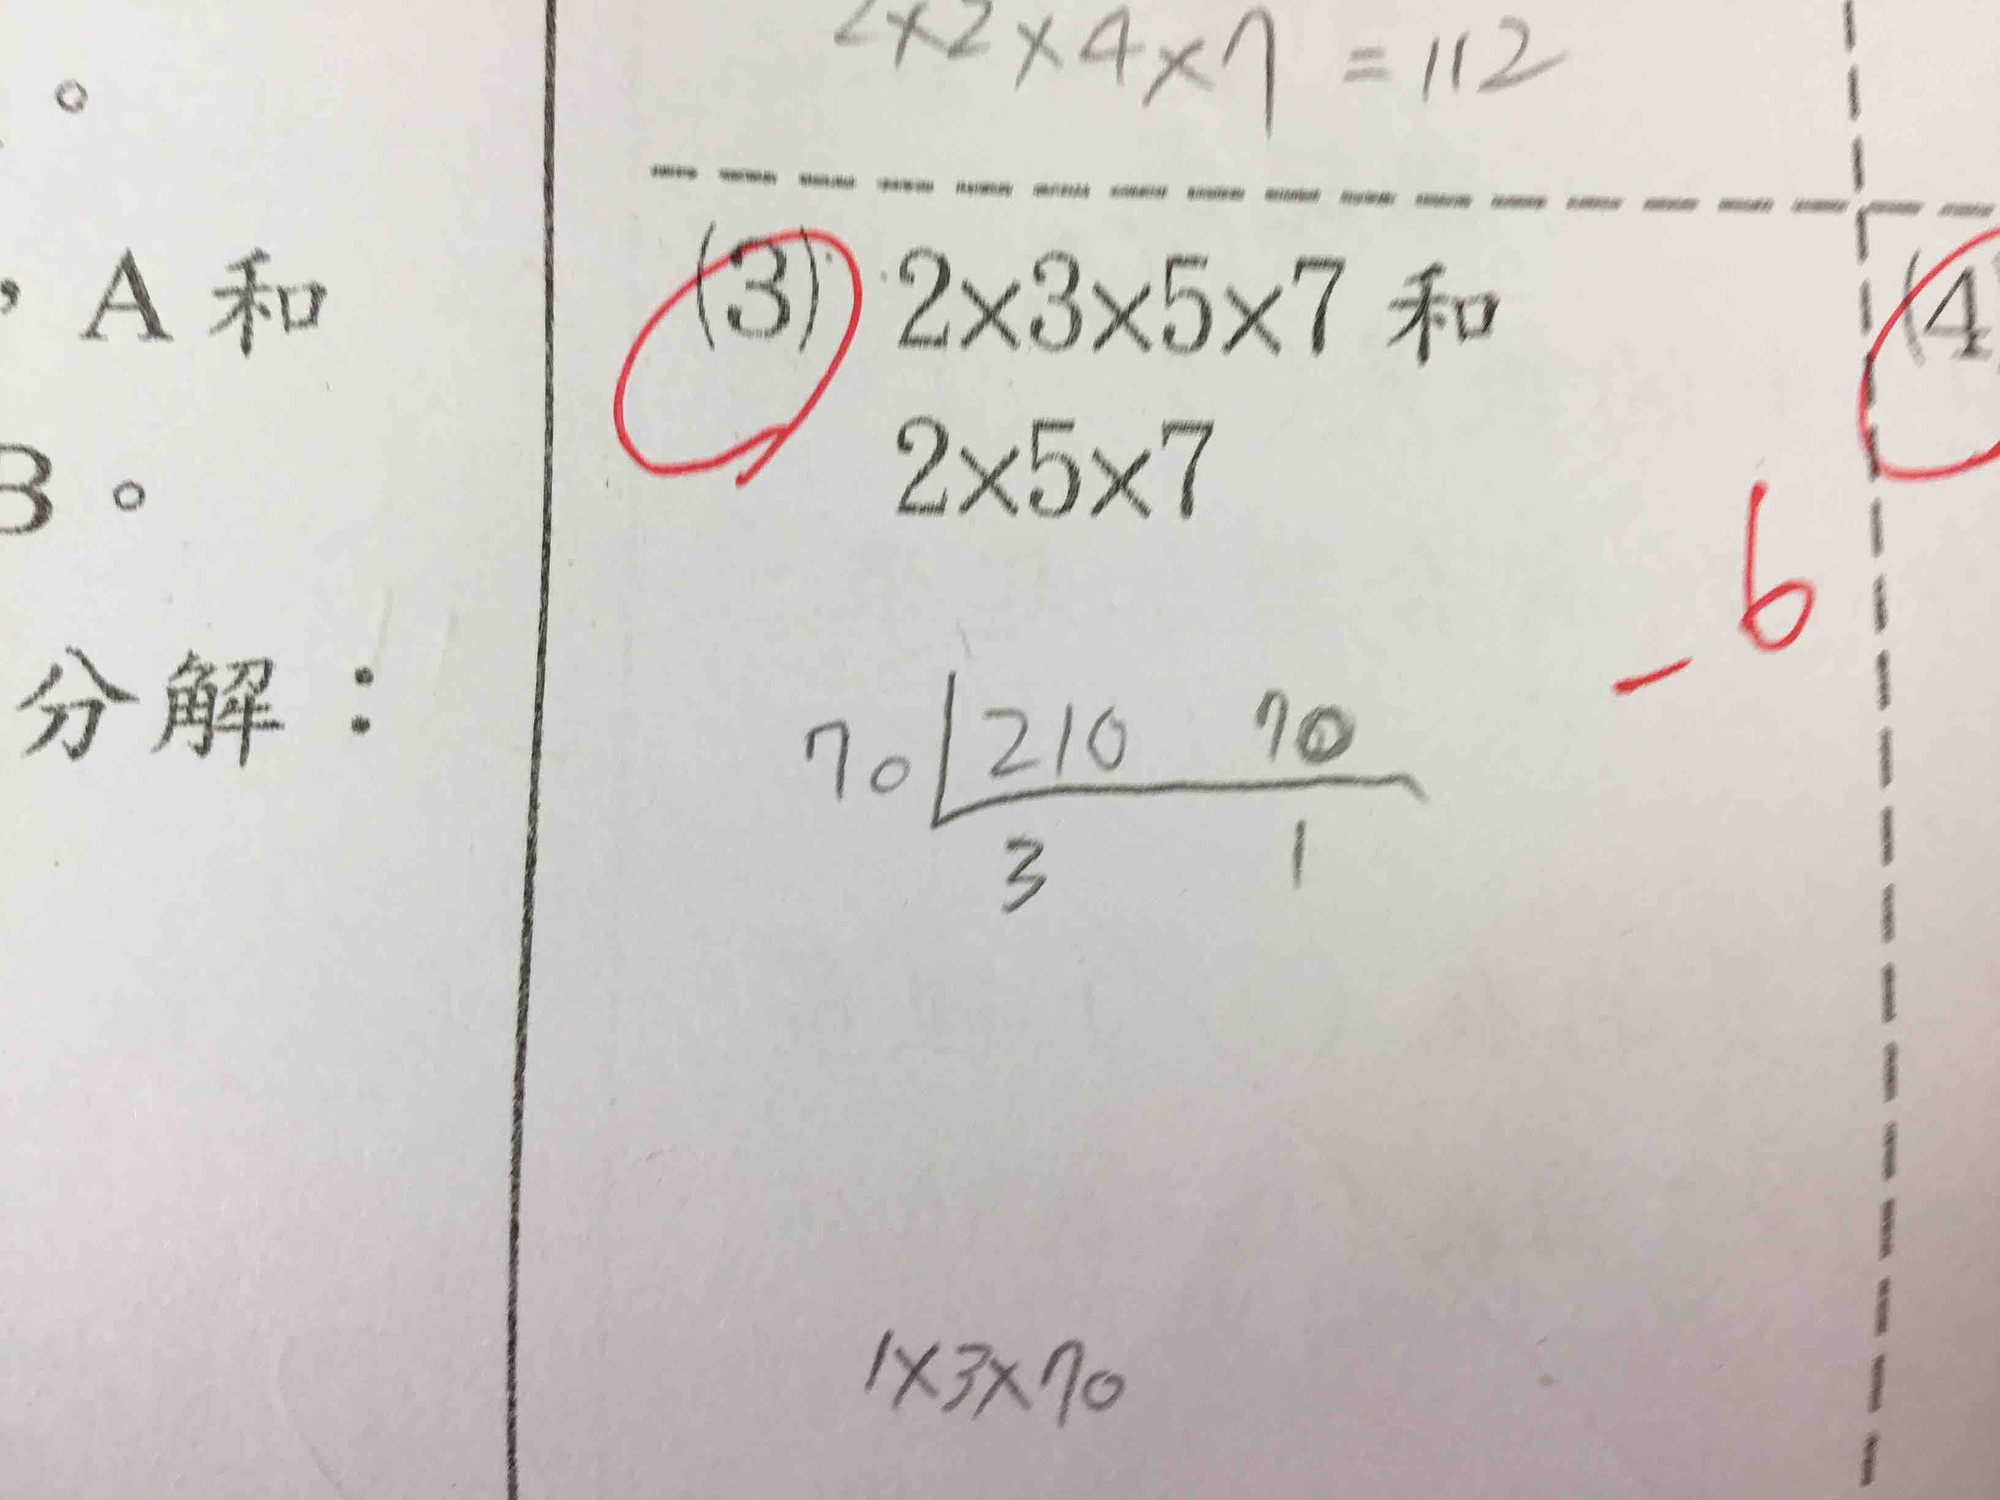 。
，A 和
B。
分解：
2×2×4×7 = 112
(3) 2×3×5×7 和
2×5×7
-6
70 210 70
3 1
1×3×70
(4)